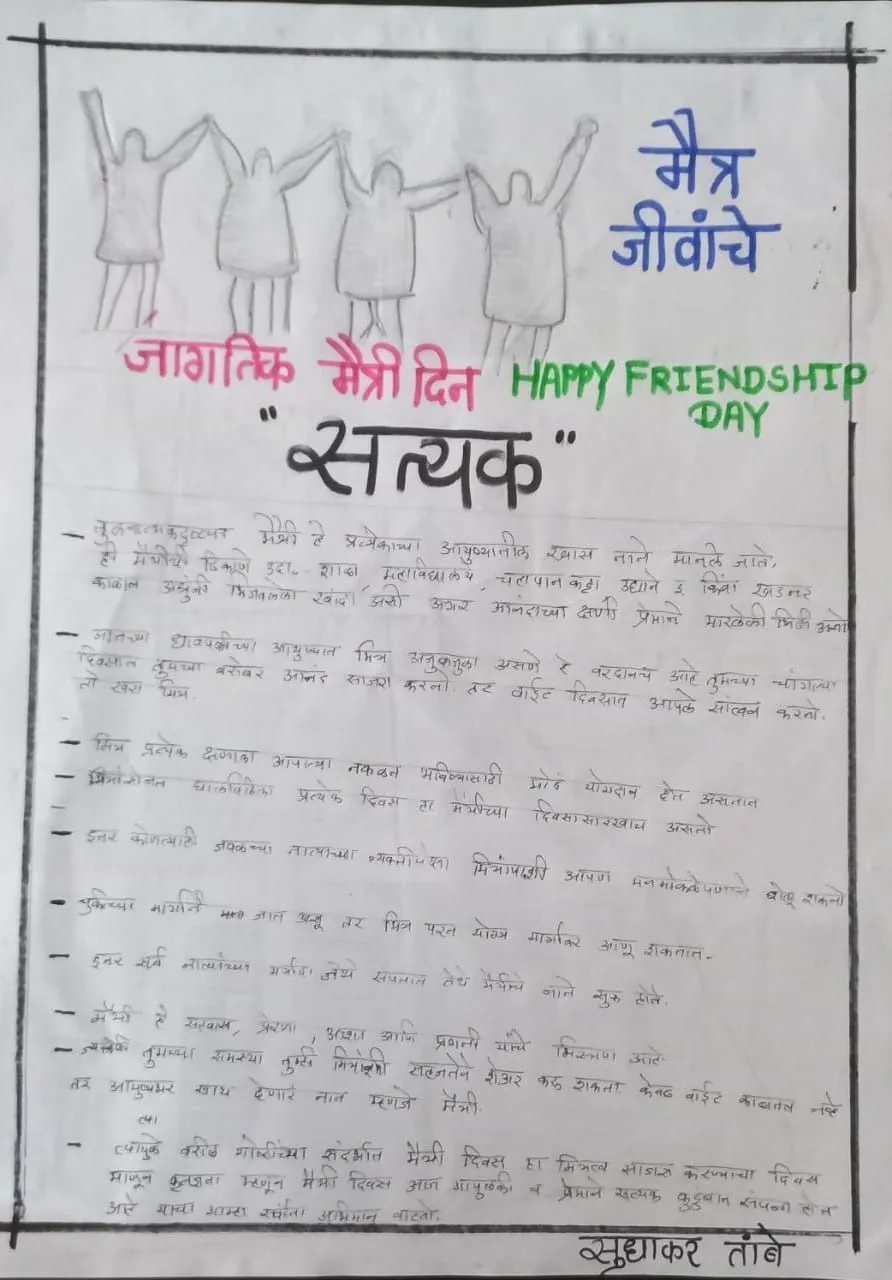 मैत्र
जीवांचे
जागतिक मैत्री दिन HAPPY FRIENDSHIP
DAY
"सत्यक"
- मैत्री हे प्रत्येकाच्या आयुष्यातील खास नाते मानले जाते.
ही मैत्रीची ठिकाणे उदा. शाळा, महाविद्यालय, चहापान कट्टा उद्याने इ किंवा
काळात अश्रुंनी भिजलेला खांदा असो अगर आनंदाच्या क्षणी प्रेमाने मारलेली मिठी असो
- धावपळीच्या आयुष्यात मित्र असणे हे वरदानच आहे तुमच्या चांगल्या
दिवसात तुमच्या बरोबर आनंद साजरा करतो. तर वाईट दिवसात आपले सांत्वन करतो.
तो खरा मित्र.
- मित्र प्रत्येक क्षणाला आपल्या नकळत भविष्यासाठी मोठं योगदान देत असतात
- मित्रांसोबत घालविलेला प्रत्येक दिवस हा मैत्रीच्या दिवसासारखाच असतो
- इतर कोणत्याही जवळच्या नात्याच्या व्यक्तीपेक्षा मित्रांपाशी आपण मनमोकळेपणाने बोलू शकतो
- चुकीच्या मार्गाने जात असू तर मित्र परत योग्य मार्गावर आणू शकतात.
- इतर सर्व नात्यांच्या मर्यादा जेथे संपतात तेथे मैत्रीचे नाते सुरु होते.
- मैत्री हे सहवास, प्रेरणा, आशा आणि प्रगती यांचे मिश्रण आहे
- तुमच्या समस्या तुम्ही मित्रांशी सहजतेने शेअर करू शकता केवळ वाईट काळातच नव्हे
तर आयुष्यभर साथ देणारं नातं म्हणजे मैत्री.
त्या
- त्यामुळे वरील गोष्टींच्या संदर्भात मैत्री दिवस हा मित्रत्व साजरा करण्याचा दिवस
म्हणून कृतज्ञता म्हणून मैत्री दिवस आज व प्रेमाने सत्यक कुटुंबात संपन्न होत
आहे याचा आम्हा सर्वांना अभिमान वाटतो.
सुधाकर तांबे